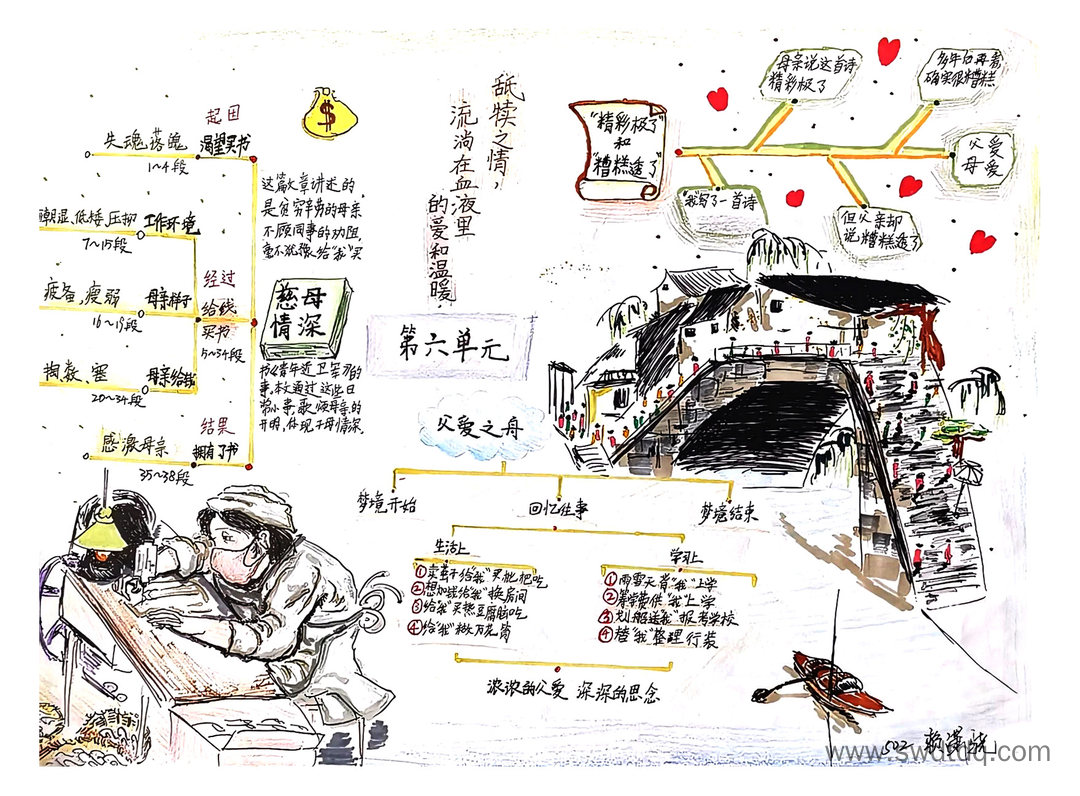 舐犊之情，
流淌在血液里
的爱和温暖，
第六单元
起因
失魂落魄
渴望买书
1~4段
潮湿、低矮、压抑
工作环境
7~15段
经过
给钱
买书
5~34段
疲惫，瘦弱
母亲样子
16~19段
掏
母亲给钱
20~34段
结果
感激母亲
拥有了书
35~38段
这篇文章讲述的
是贫穷辛劳的母亲
不顾同事的劝阻，
毫不犹豫给“我”买
慈母
情深
书《青年近卫军》的
事，本文通过这些日
常小事，歌颂母亲的
开明，体现了母情深
“精彩极了”
和
“糟糕透了”
母亲说这首诗
精彩极了
多年后再看
确实很糟糕
父爱
母爱
“我”写了一首诗
但父亲却
说糟糕透了
父爱之舟
梦境开始
回忆往事
梦境结束
生活上
①卖茧子给“我”买枇杷吃
②想加钱给“我”换房间
③给“我”买热豆腐脑吃
④给“我”做万花筒
学习上
①雨雪天背“我”上学
②筹学费供“我”上学
③划船送“我”报考学校
④替“我”整理行装
浓浓的父爱 深深的思念
502
www.swdtdq.com